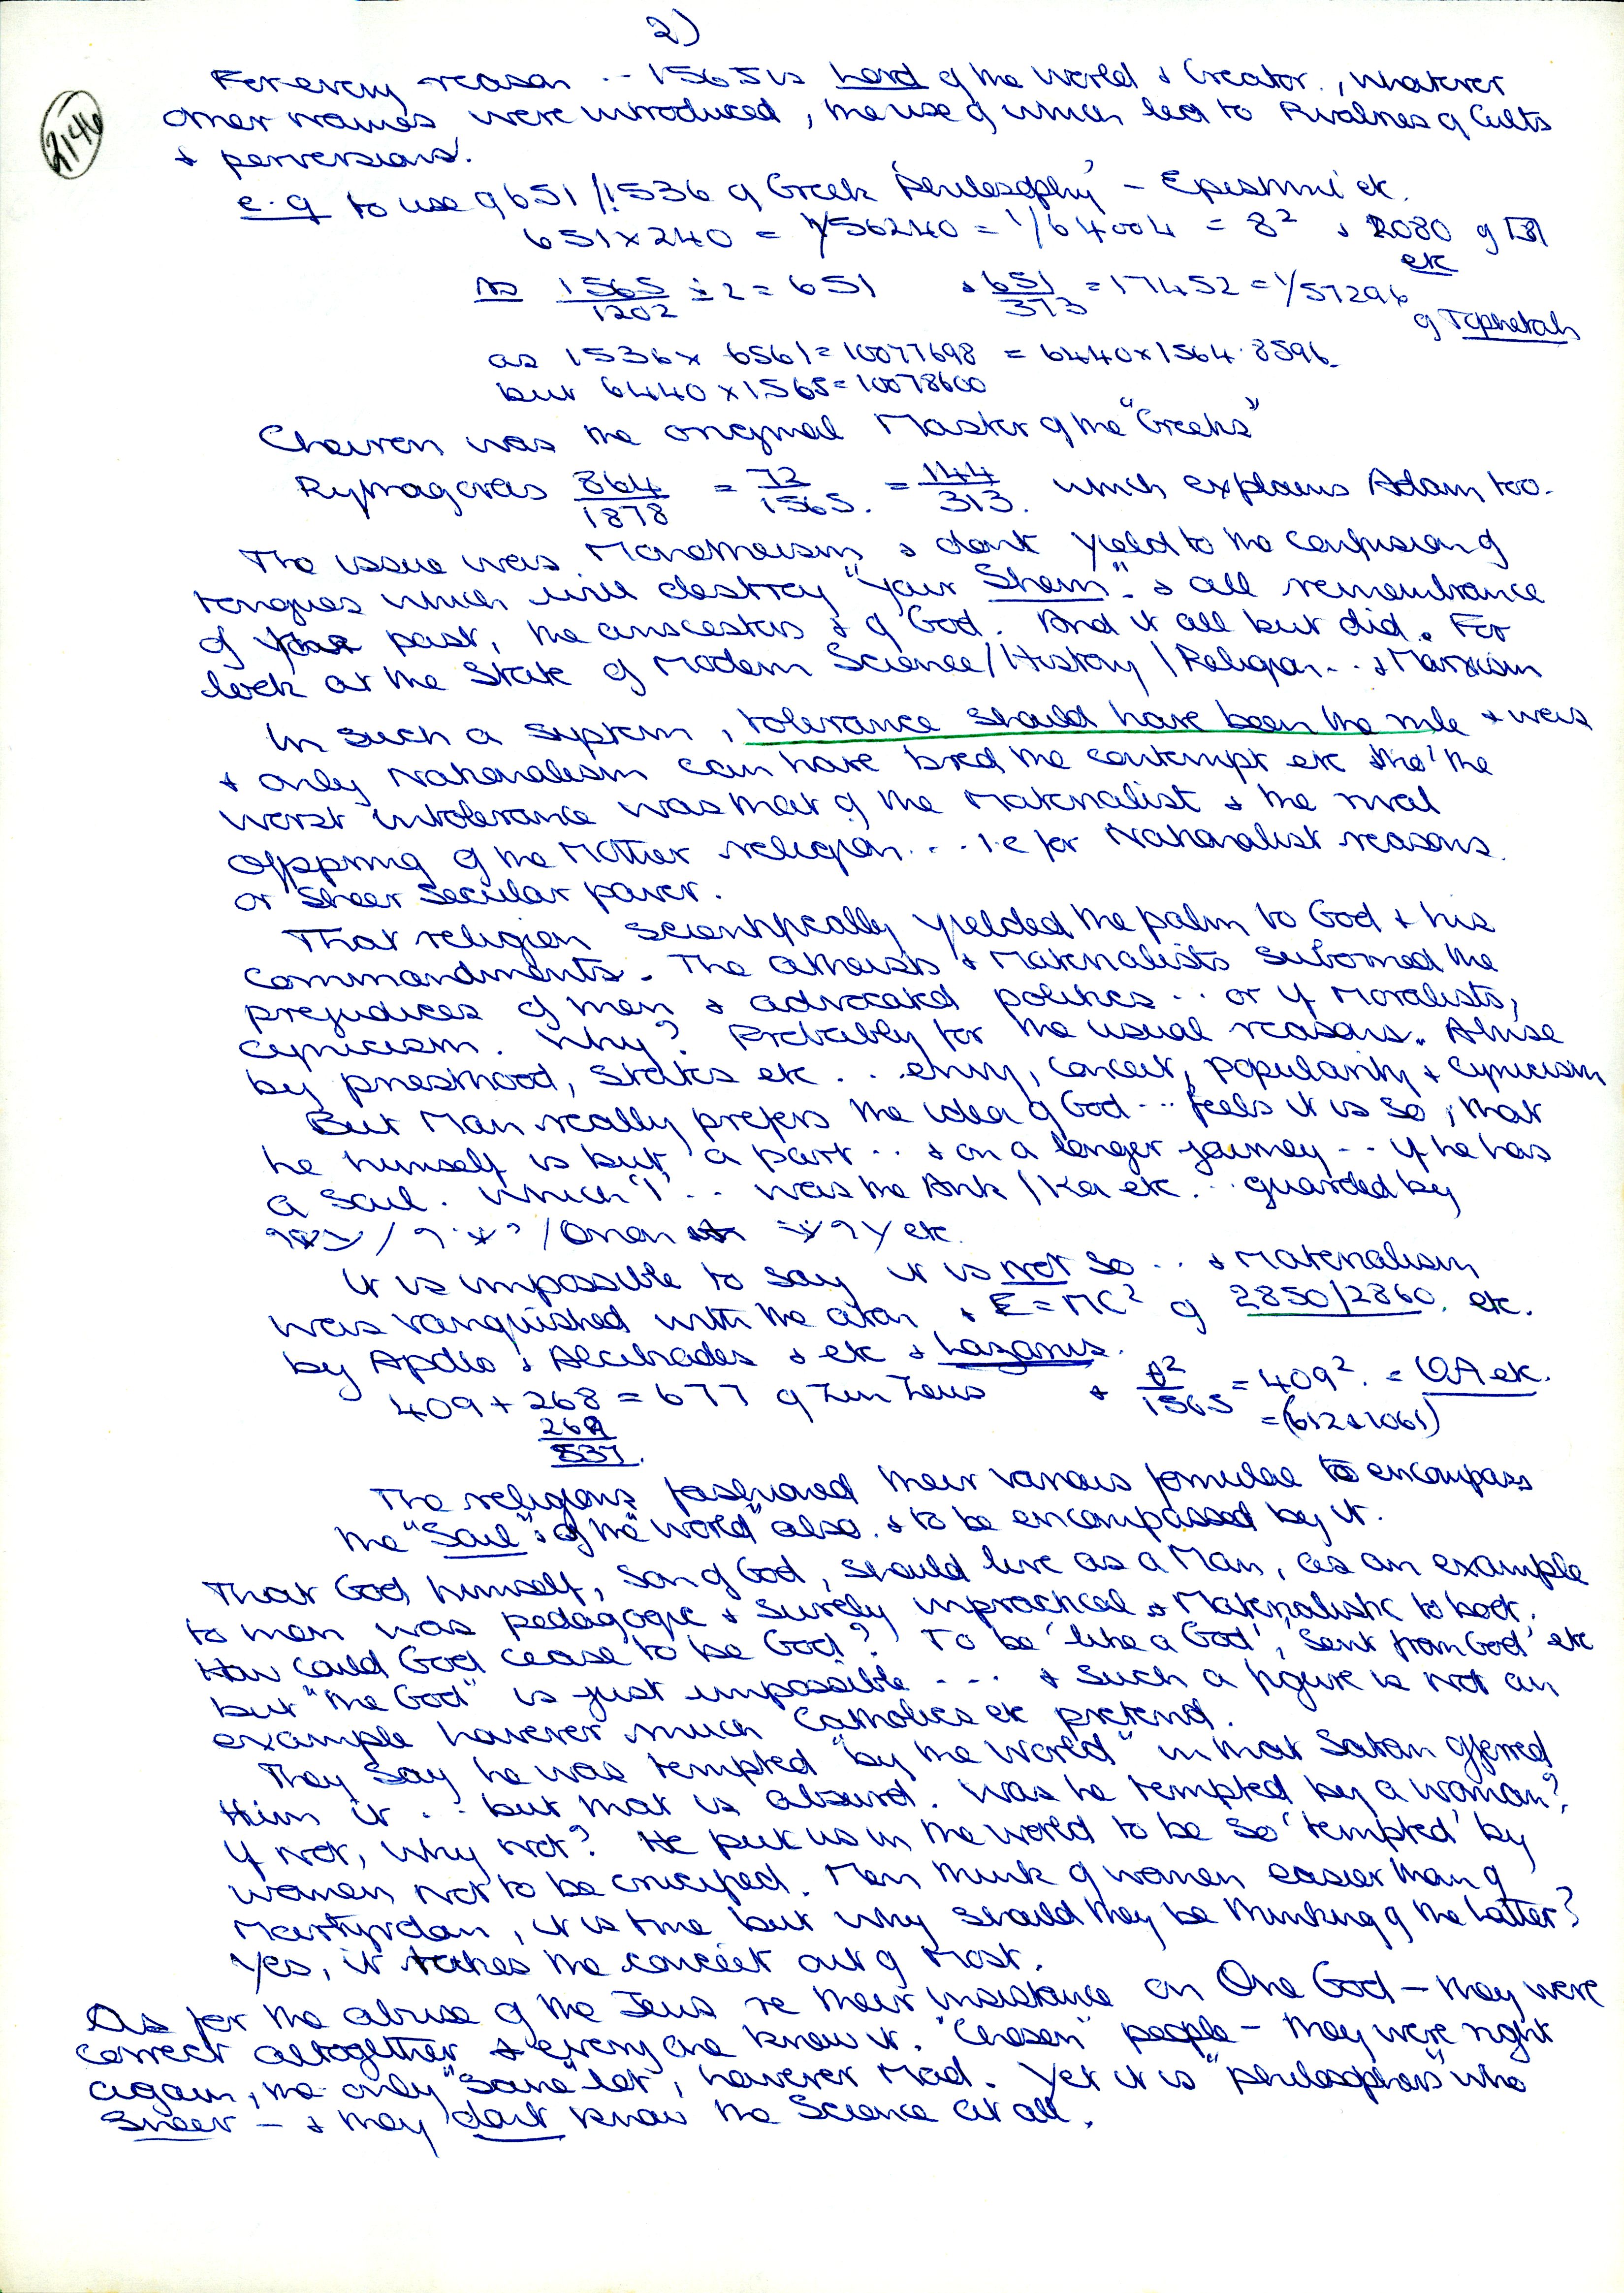 2)
2146
For every reason .. 1565 is Lord of the World & Creator., whatever
other names were introduced, the use of which led to Rivalries of Cults
& perversions.
e.g to use of 651 / 1536 of Greek 'philosophy' - etc.
651 x 240 = 1/56240 = 1/64004 = 8² & 2080 of
etc
as 1565/1202 ÷ 2 = 651 & 651/373 = 17452 = 1/57296
of
as 1536 x 6561 = 10077698 = 6440 x 1564.8596.
but 6440 x 1565 = 10078600
was the original Master of the "Greeks"
Pythagoras 864/1878 = 72/1565. = 144/313. which explains Adam too.
The issue was Monotheism & dont yield to the confusion of
tongues which will destroy "your Shem". & all remembrance
of past, the anscestors & of God. And it all but did. For
look at the State of Modern Science / History / Religion.. & Marxism
In such a system, tolerance should have been the rule & was
& only Nationalism can have bred the contempt etc tho' the
worst intolerance was that of the Materialist & the rival
offspring of the Mother religion... i.e for Nationalist reasons.
or sheer secular power.
That religion scientifically yielded the palm to God & his
commandments. The atheists & Materialists suborned the
prejudices of men & advocated politics .. or if Moralists,
cynicism. Why? Probably for the usual reasons. Abuse
by priesthood, states etc ... envy, conceit, popularity & cynicism
But Man really prefers the idea of God ... feels it is so, that
he himself is but a part .. & on a longer journey .. if he has
a soul. Which 'I' .. was the Ank / Ka etc ... guarded by
/ Onan etc.
It is impossible to say it is not so .. & Materialism
was vanquished with the atom & E = MC² of 2850/2860, etc.
by Apollo & Alcibiades & etc & Lazarus.
409 + 268 = 677 of Zun Zeus & /1565 = 409². = etc.
= (612 & 1061)
269
537.
The religions fashioned their various formulae to encompass
the "Soul" & of the "World" also. & to be encompassed by it.
That God himself, Son of God, should live as a Man, as an example
to men was pedagogic & surely inpractical & Materialistic to boot.
How could God cease to be God? To be 'like a God', 'sent from God' etc
but "the God" is just impossible --- & such a figure is not an
example however much Catholics etc pretend.
They say he was tempted "by the World" in that Satan offered
Him it .. but that is absurd. Was he tempted by a woman?
If not, why not? He put us in the world to be so 'tempted' by
women not to be crucified. Men think of women easier than of
Martyrdom, it is true but why should they be thinking of the latter?
Yes, it takes the conceit out of most.
As for the abuse of the Jews re their insistance on One God - they were
correct altogether & every one knew it. "Chosen" people - they were right
again, the only "Sane" lot, however Mad. Yet it is "philosophers" who
Sneer - & they dont know the Science at all.